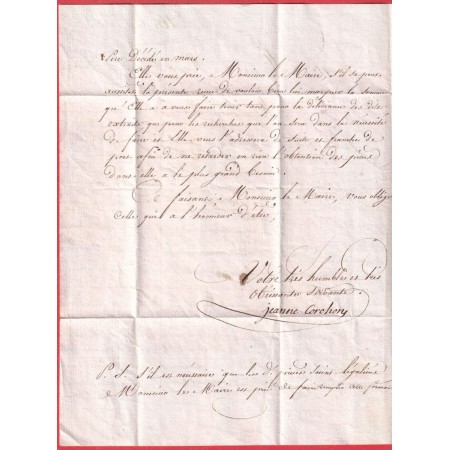 Père Décédé en mars.
Elle vous prie, Monsieur le Maire, s'il se peut
la présente de vouloir bien lui marquer la somme
qu'Elle a à vous faire tenir tant pour la délivrance des dits
extraits que pour les recherches que l'on sera dans la nécessité
de faire et Elle vous l'adressera de suite et franche de
port afin de ne retarder en rien l'obtention des pièces
dont elle a le plus grand besoin
faisant, Monsieur le Maire, vous obligerez
Celle qui a l'honneur d'être,
Votre très humble et très
Obéissante Servante
jeanne Corchon
P. S. S'il est nécessaire que les d. pièces soient légalisées
Monsieur le Maire est prié de faire remplir cette